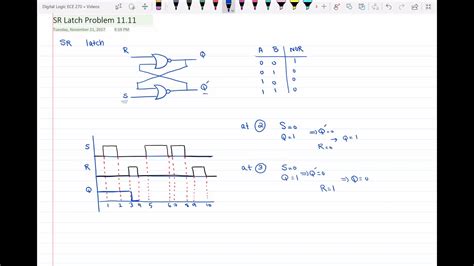 Digital Logic ECE 270 + Videos
SR Latch Problem 11.11
Tuesday, November 21, 2017
SR latch
R
Q
S
Q'
A B NOR
0 0 1
0 1 0
1 0 0
1 1 0
at 2 S=0 ⇒ Q'=0
Q=1 → Q=1
R=0
at 3 S=0 ⇒ Q'=0 ⇒ Q=0
Q=1
R=1
S
R
Q
1 2 3 4 5 6 7 8 9 10